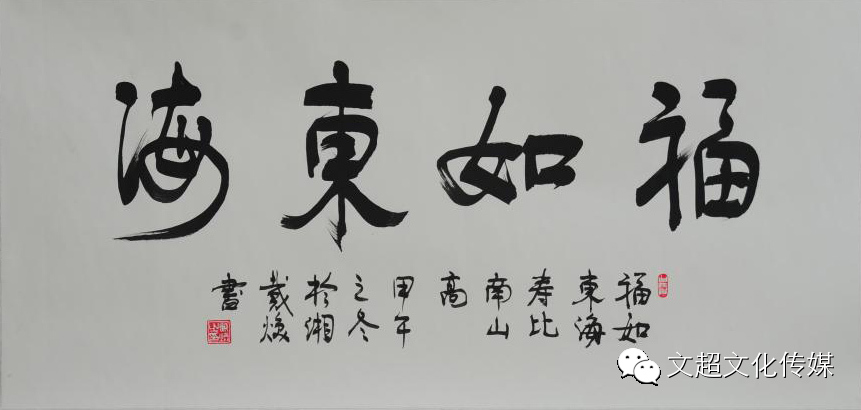 福如東海
福如
東海
寿比
南山
高
甲午
之冬
於湘
戴焕
書
文超文化传媒